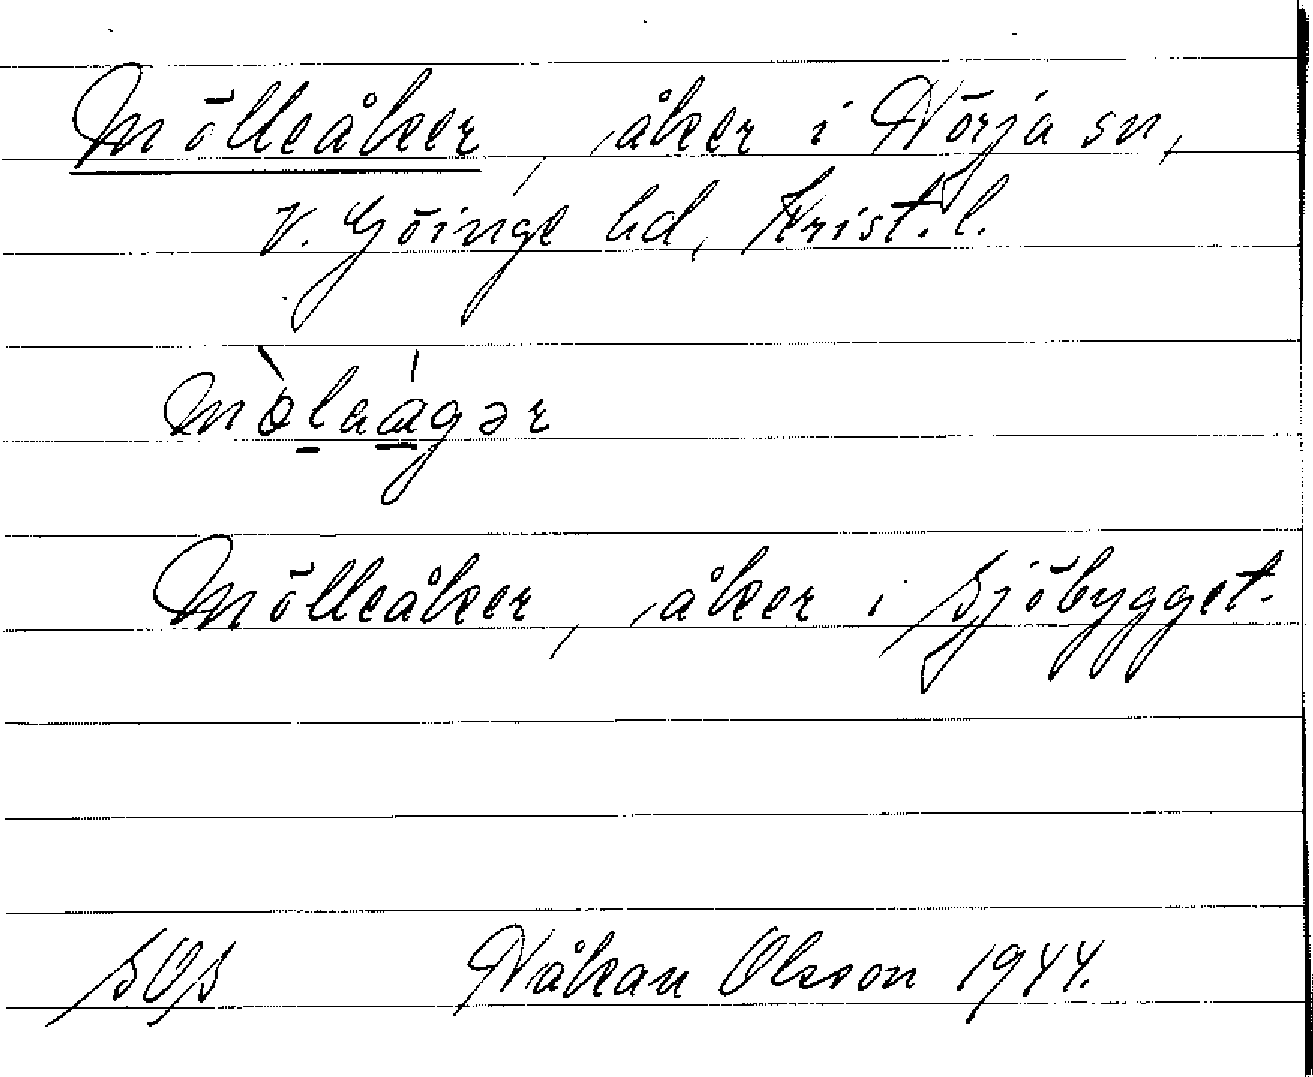 Mölleåker, åker i Nörja sn,
V. Göinge hd, Krist. l.
Mölleåker, åker i Sjöbygget.
SOS Håkan Olsson 1944.